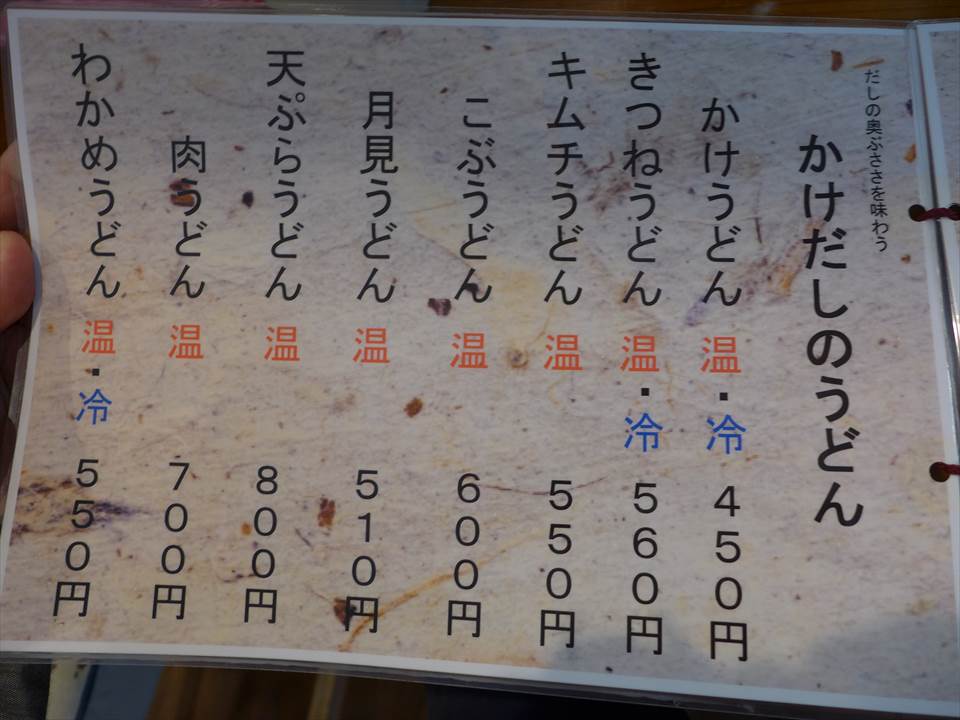 だしの奥ぶささを味わう
かけだしのうどん
かけうどん 温・冷 450円
きつねうどん 温・冷 560円
キムチうどん 温 550円
こぶうどん 温 600円
月見うどん 温 510円
天ぷらうどん 温 800円
肉うどん 温 700円
わかめうどん 温・冷 550円